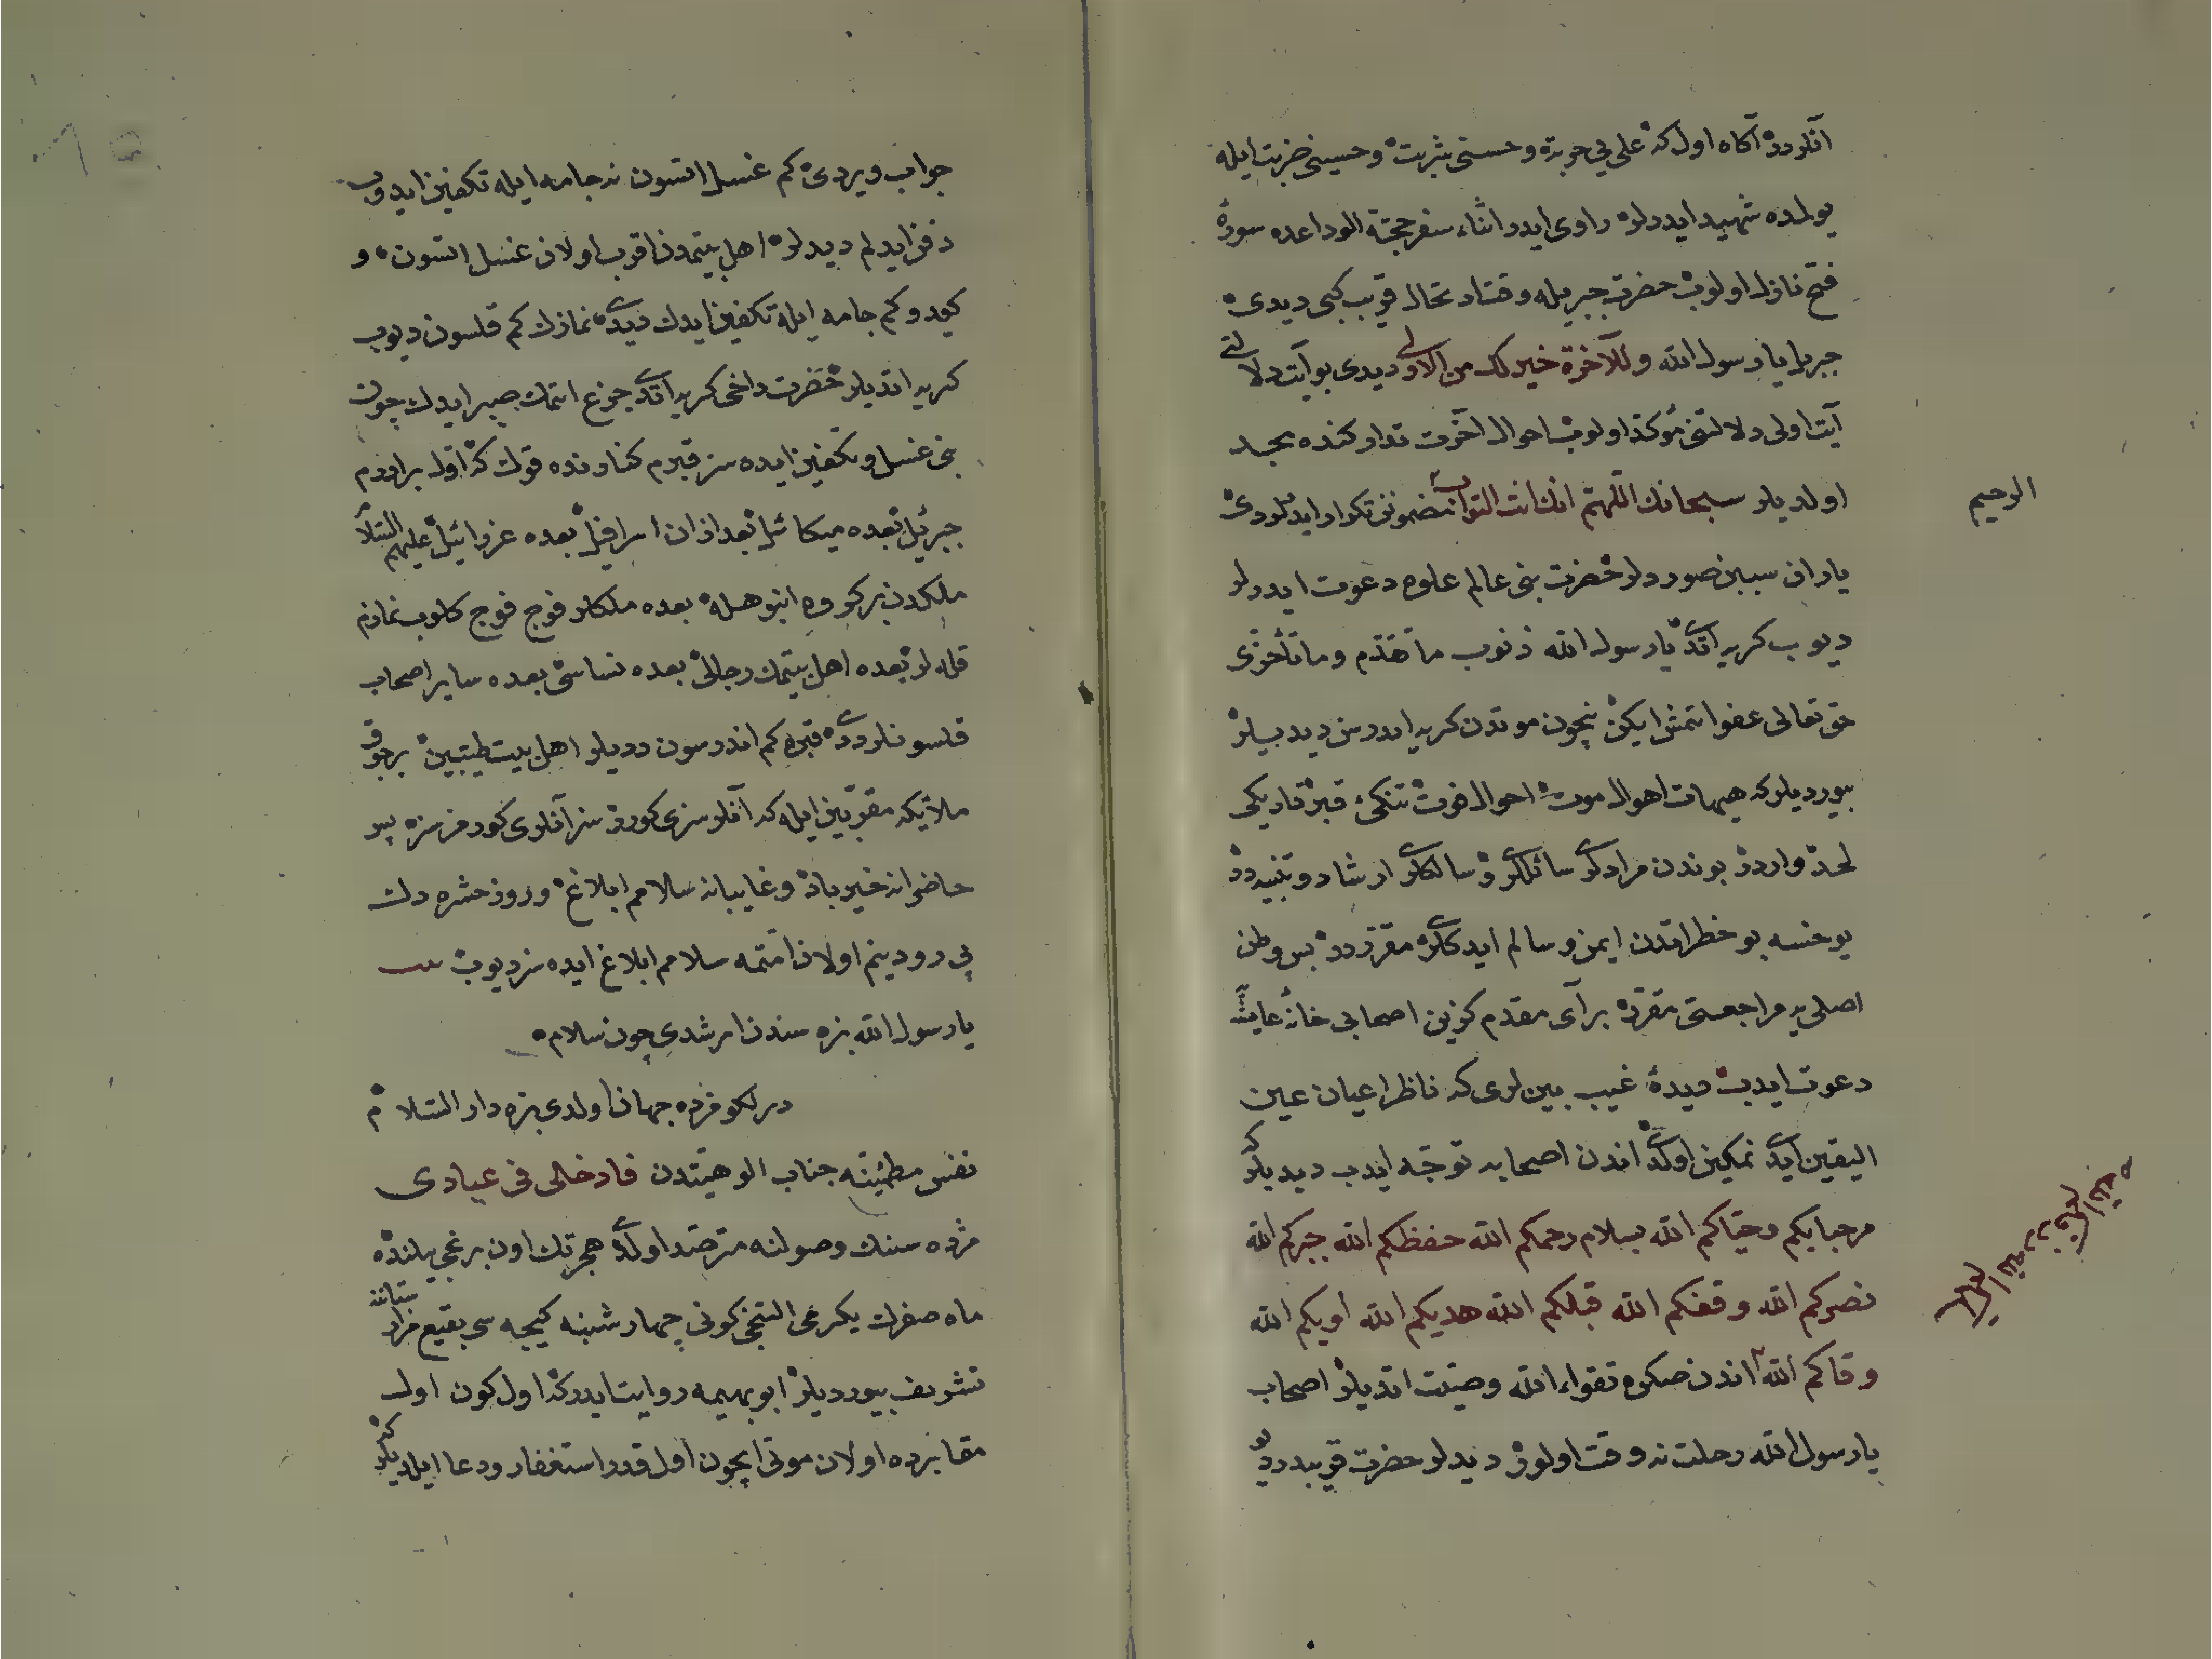 انلردر آگاه اول كه علی یی حربه و حسنی شربت و حسینی ضربت ایله
یولده شهید ایدرلر راوی ایدر اثناء سفر حجة الوداعده سورۀ
فتح نازل اولوب حضرت جبریله وقتاد تحال قریب كبی دیدی
جبریل یا رسول الله وللآخرة خیر لك من الاولی دیدی بو آیت دلالتی
آیت اولی دلالتنی مؤكد اولوب احوال آخرت تداركنده بجد
اولدیلر سبحانك اللهم انك انت التواب مضمونن تكرار ایدرلردی
الرحیم
یاران سببن صوردیلر حضرت بنی عالم علوه دعوت ایدرلر
دیوب كریه اتدی یا رسول الله ذنوب ما تقدم وما تأخری
حق تعالی عفو اتمش ایكن نیچون موتدن كریه ایدرسن دیدیلر
بیوردیلركه هیهات اهوال موت احوال فوت تنكی قبر تاریكی
لحد واردر بوندن مرادلری سائللری و سالكلری ارشاد و تنبیهدر
یوخسه بو خطراتدن ایمن و سالم ایدكلری مقرردر پس وطن
اصلی یه مراجعتی مقرر برای مقدم كزین اصحابی خانۀ عایشه
دعوت ایدب دیدۀ غیب بین لری كه ناظر اعیان عین
الیقین ایدی نمكین اولدی اندن اصحابه توجه ایدب دیدیلر كه
مرحبا بكم وحیاكم الله بسلام رحمكم الله حفظكم الله جبركم الله
نصركم الله وفقكم الله قبلكم الله هدیكم الله اویكم الله
وقاكم الله اندن صكره تقواء الله وصیت اتدیلر اصحاب
یا رسول الله رحلت نه وقت اولور دیدلر حضرت قریبدر دیو
جواب ویردی كم غسل اتسون نه جامه ایله تكفین ایدوب
دفن ایدلم دیدلر اهل بیتمدن اقرب اولان غسل اتسون و
كیدوكم جامه ایله تكفین ایدك دیدی نمازك كم قلسون دیوب
كریه اتدیلر حضرت داخی كریه اتدی جزع اتمك صبر ایدك چون
بنی غسل و تكفین ایده سز قبرم كنارنده قوك كه اول برادرم
جبرئیل بعده میكائیل بعد اذان اسرافیل بعده عزرائیل علیهم السلام
ملكدن بر كروه انبوهله بعده ملكلر فوج فوج كلوب نمازم
قله لر بعده اهل بیتمك رجالی بعده نساسی بعده سایر اصحاب
قلسونلر دیدی قبره كم اندرسون دیدیلر اهل بیت طیبین بر جوق
ملائكه مقربین ایله كه آنلر سزی كورر سز آنلری كورمزسزه پس
حاضرانه خیرباد و غایبانه سلامم ابلاغ و روز حشره دك
پی رو دینم اولان امتمه سلامم ابلاغ ایده سز دیوب بیت
یا رسول الله بزه سندن امرشدی چون سلام
نفس مطمئنه جناب الوهیتدن فادخلی فی عبادی
مژده سنك وصولنه مترصد اولدی هجرتك اون برنجی یلنده
ماه صفرك یكرمی التنجی كونی چهارشنبه كیجه سی بقیع مزارستاننه
تشریف بیوردیلر ابو بهیمه روایت ایدر كه اول كون اول
مقابرده اولان موتی ایچون اول قدر استغفار و دعا ایلدیلر كه